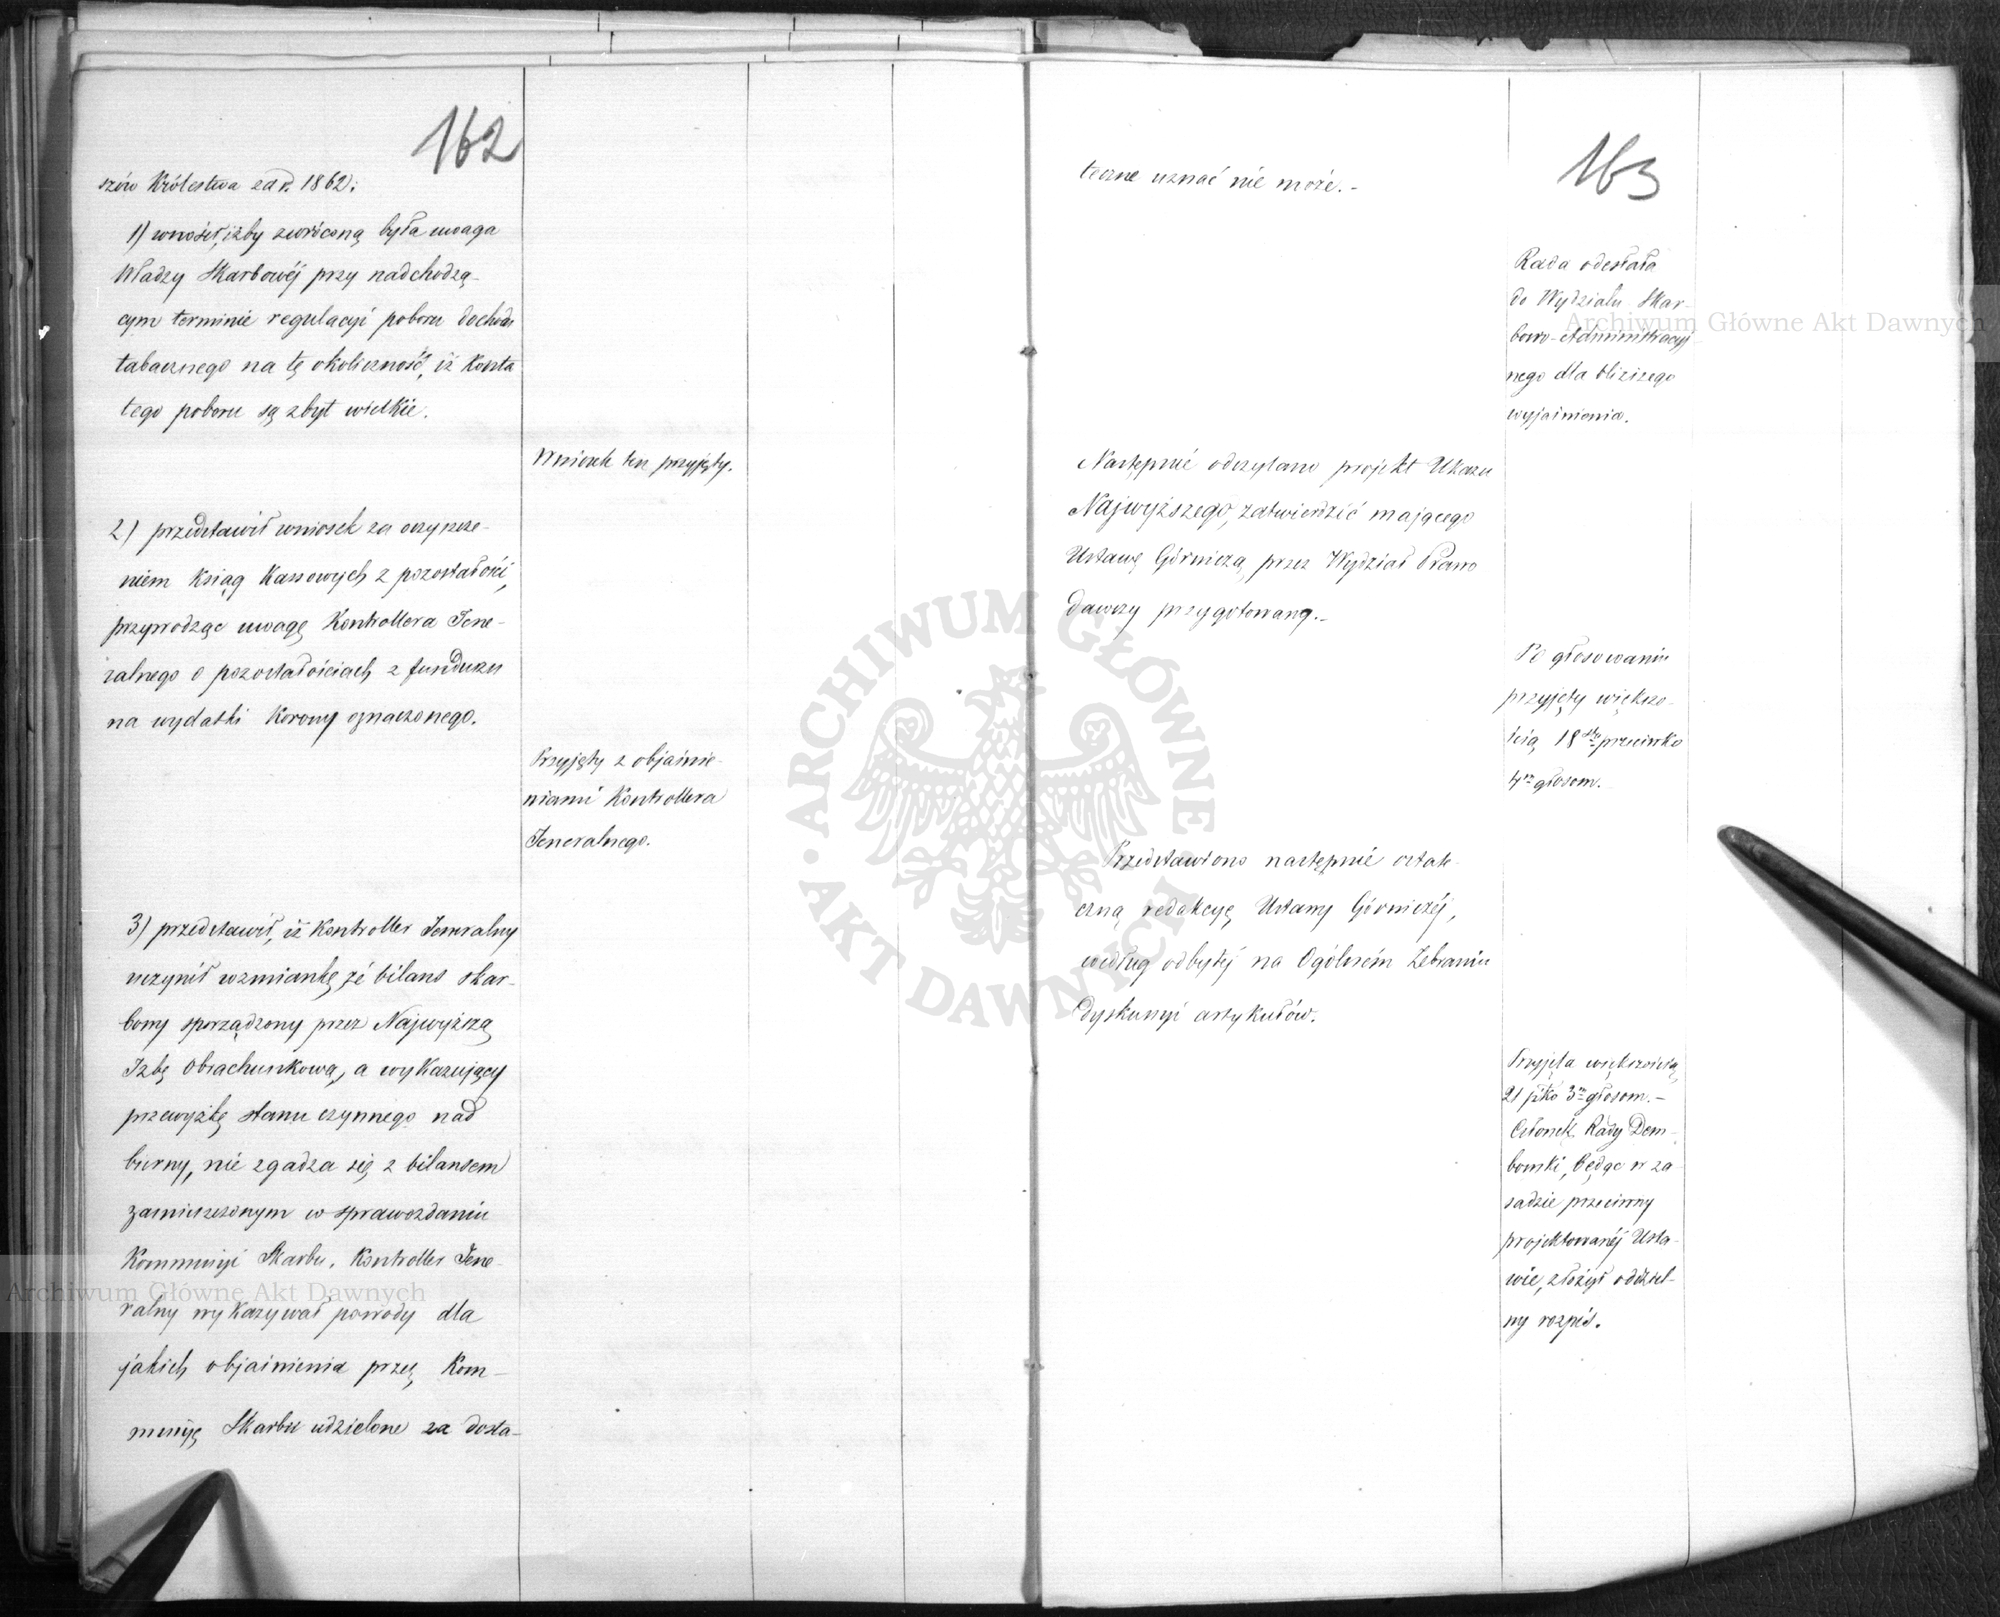 162
szów Królestwa za r. 1862:
1) wnosił, iżby zwróconą była uwaga
Władzy Skarbowéj przy nadchodzą-
cym terminie regulacyi poboru dochodu
tabacznego na tę okoliczność, iż koszta
tego poboru są zbyt wielkie.
Wniosek ten przyjęty.
2) przedstawił wniosek za oczyszcze-
niem ksiąg Kassowych z pozostałości,
przywodząc uwagę Kontrollera Jene-
ralnego o pozostałościach z funduszu
na wydatki Korony oznaczonego.
Przyjęty z objaśnie-
niami Kontrollera
Jeneralnego.
3) przedstawił, iż Kontroller Jeneralny
uczynił wzmiankę, że bilans skar-
bowy sporządzony przez Najwyższą
Izbę Obrachunkową, a wykazujący
przewyżkę stanu czynnego nad
bierny, nie zgadza się z bilansem
zamieszczonym w sprawozdaniu
Kommissyi Skarbu. Kontroller Jene-
ralny wykazywał powody dla
jakich objaśnienia przez Kom-
missyę Skarbu udzielone za dosta-
163
teczne uznać nie może.-
Rada odesłała
do Wydziału Skar-
bowo-Administracyj-
nego dla bliższego
wyjaśnienia.
Następnie odczytano projekt Ukazu
Najwyższego, zatwierdzić mającego
Ustawę Górniczą, przez Wydział Prawo
dawczy przygotowaną.-
Po głosowaniu
przyjęty większo-
ścią 18stu przeciwko
4m głosom.
Przedstawiono następnie ostate-
czną redakcyę Ustawy Górniczéj,
według odbytéj na Ogólném Zebraniu
dyskussyi artykułów.
Przyjęta większością
21 pko 3m głosom.-
Członek Rady Dem-
bowski, będąc w za-
sadzie przeciwny
projektowanéj Usta-
wie, złożył oddziel-
ny rozpis.
ARCHIWUM GŁÓWNE AKT DAWNYCH
Archiwum Główne Akt Dawnych
Archiwum Główne Akt Dawnych